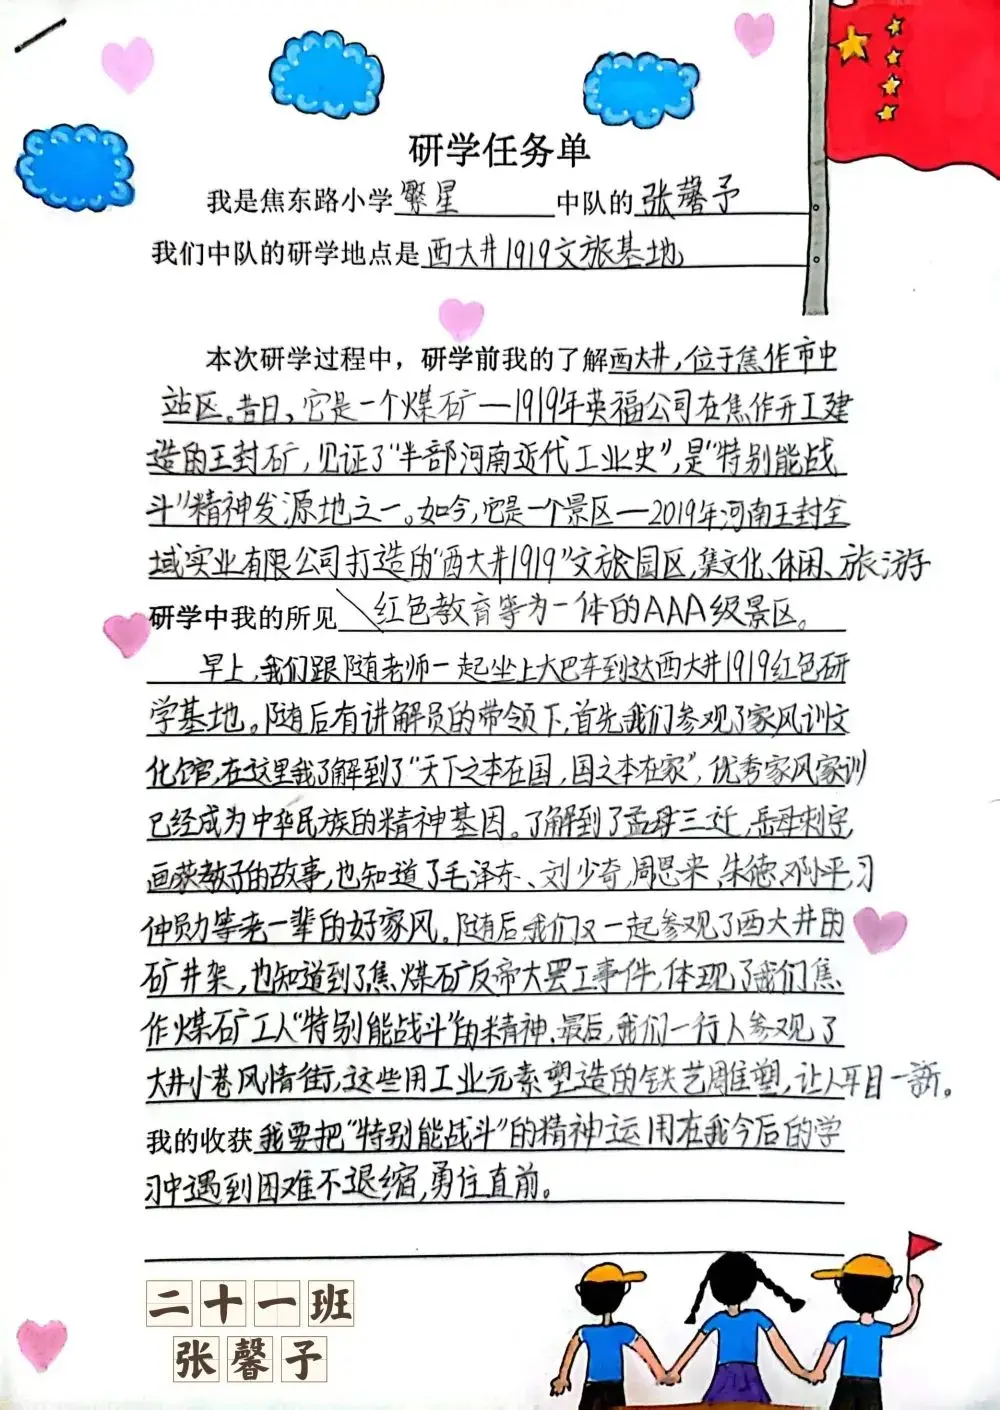 研学任务单
我是焦东路小学繁星中队的张馨予。
我们中队的研学地点是西大井1919文旅基地。
本次研学过程中，研学前我的了解西大井，位于焦作市中
站区。昔日，它是一个煤矿—1919年英福公司在焦作开工建
造的王封矿，见证了“半部河南近代工业史”，是“特别能战
斗”精神发源地之一。如今，它是一个景区—2019年河南王封全
域实业有限公司打造的“西大井1919”文旅园区，集文化、休闲、旅游
研学中我的所见 红色教育等为一体的AAA级景区。
早上，我们跟随老师一起坐上大巴车到达西大井1919红色研
学基地。随后有讲解员的带领下，首先我们参观了家风训文
化馆，在这里我了解到了“天下之本在国，国之本在家”，优秀家风家训
已经成为中华民族的精神基因。了解到了孟母三迁，岳母刺字，
画荻教子的故事，也知道了毛泽东、刘少奇，周恩来、朱德、邓小平，习
仲勋等老一辈的好家风。随后，我们又一起参观了西大井的
矿井架，也知道到了焦煤矿反帝大罢工事件，体现了我们焦
作煤矿工人“特别能战斗”的精神、最后，我们一行人参观了
大井小巷风情街，这些用工业元素塑造的铁艺雕塑，让人耳目一新。
我的收获我要把“特别能战斗”的精神运用在我今后的学
习中遇到困难不退缩，勇往直前。
二十一班
张馨予